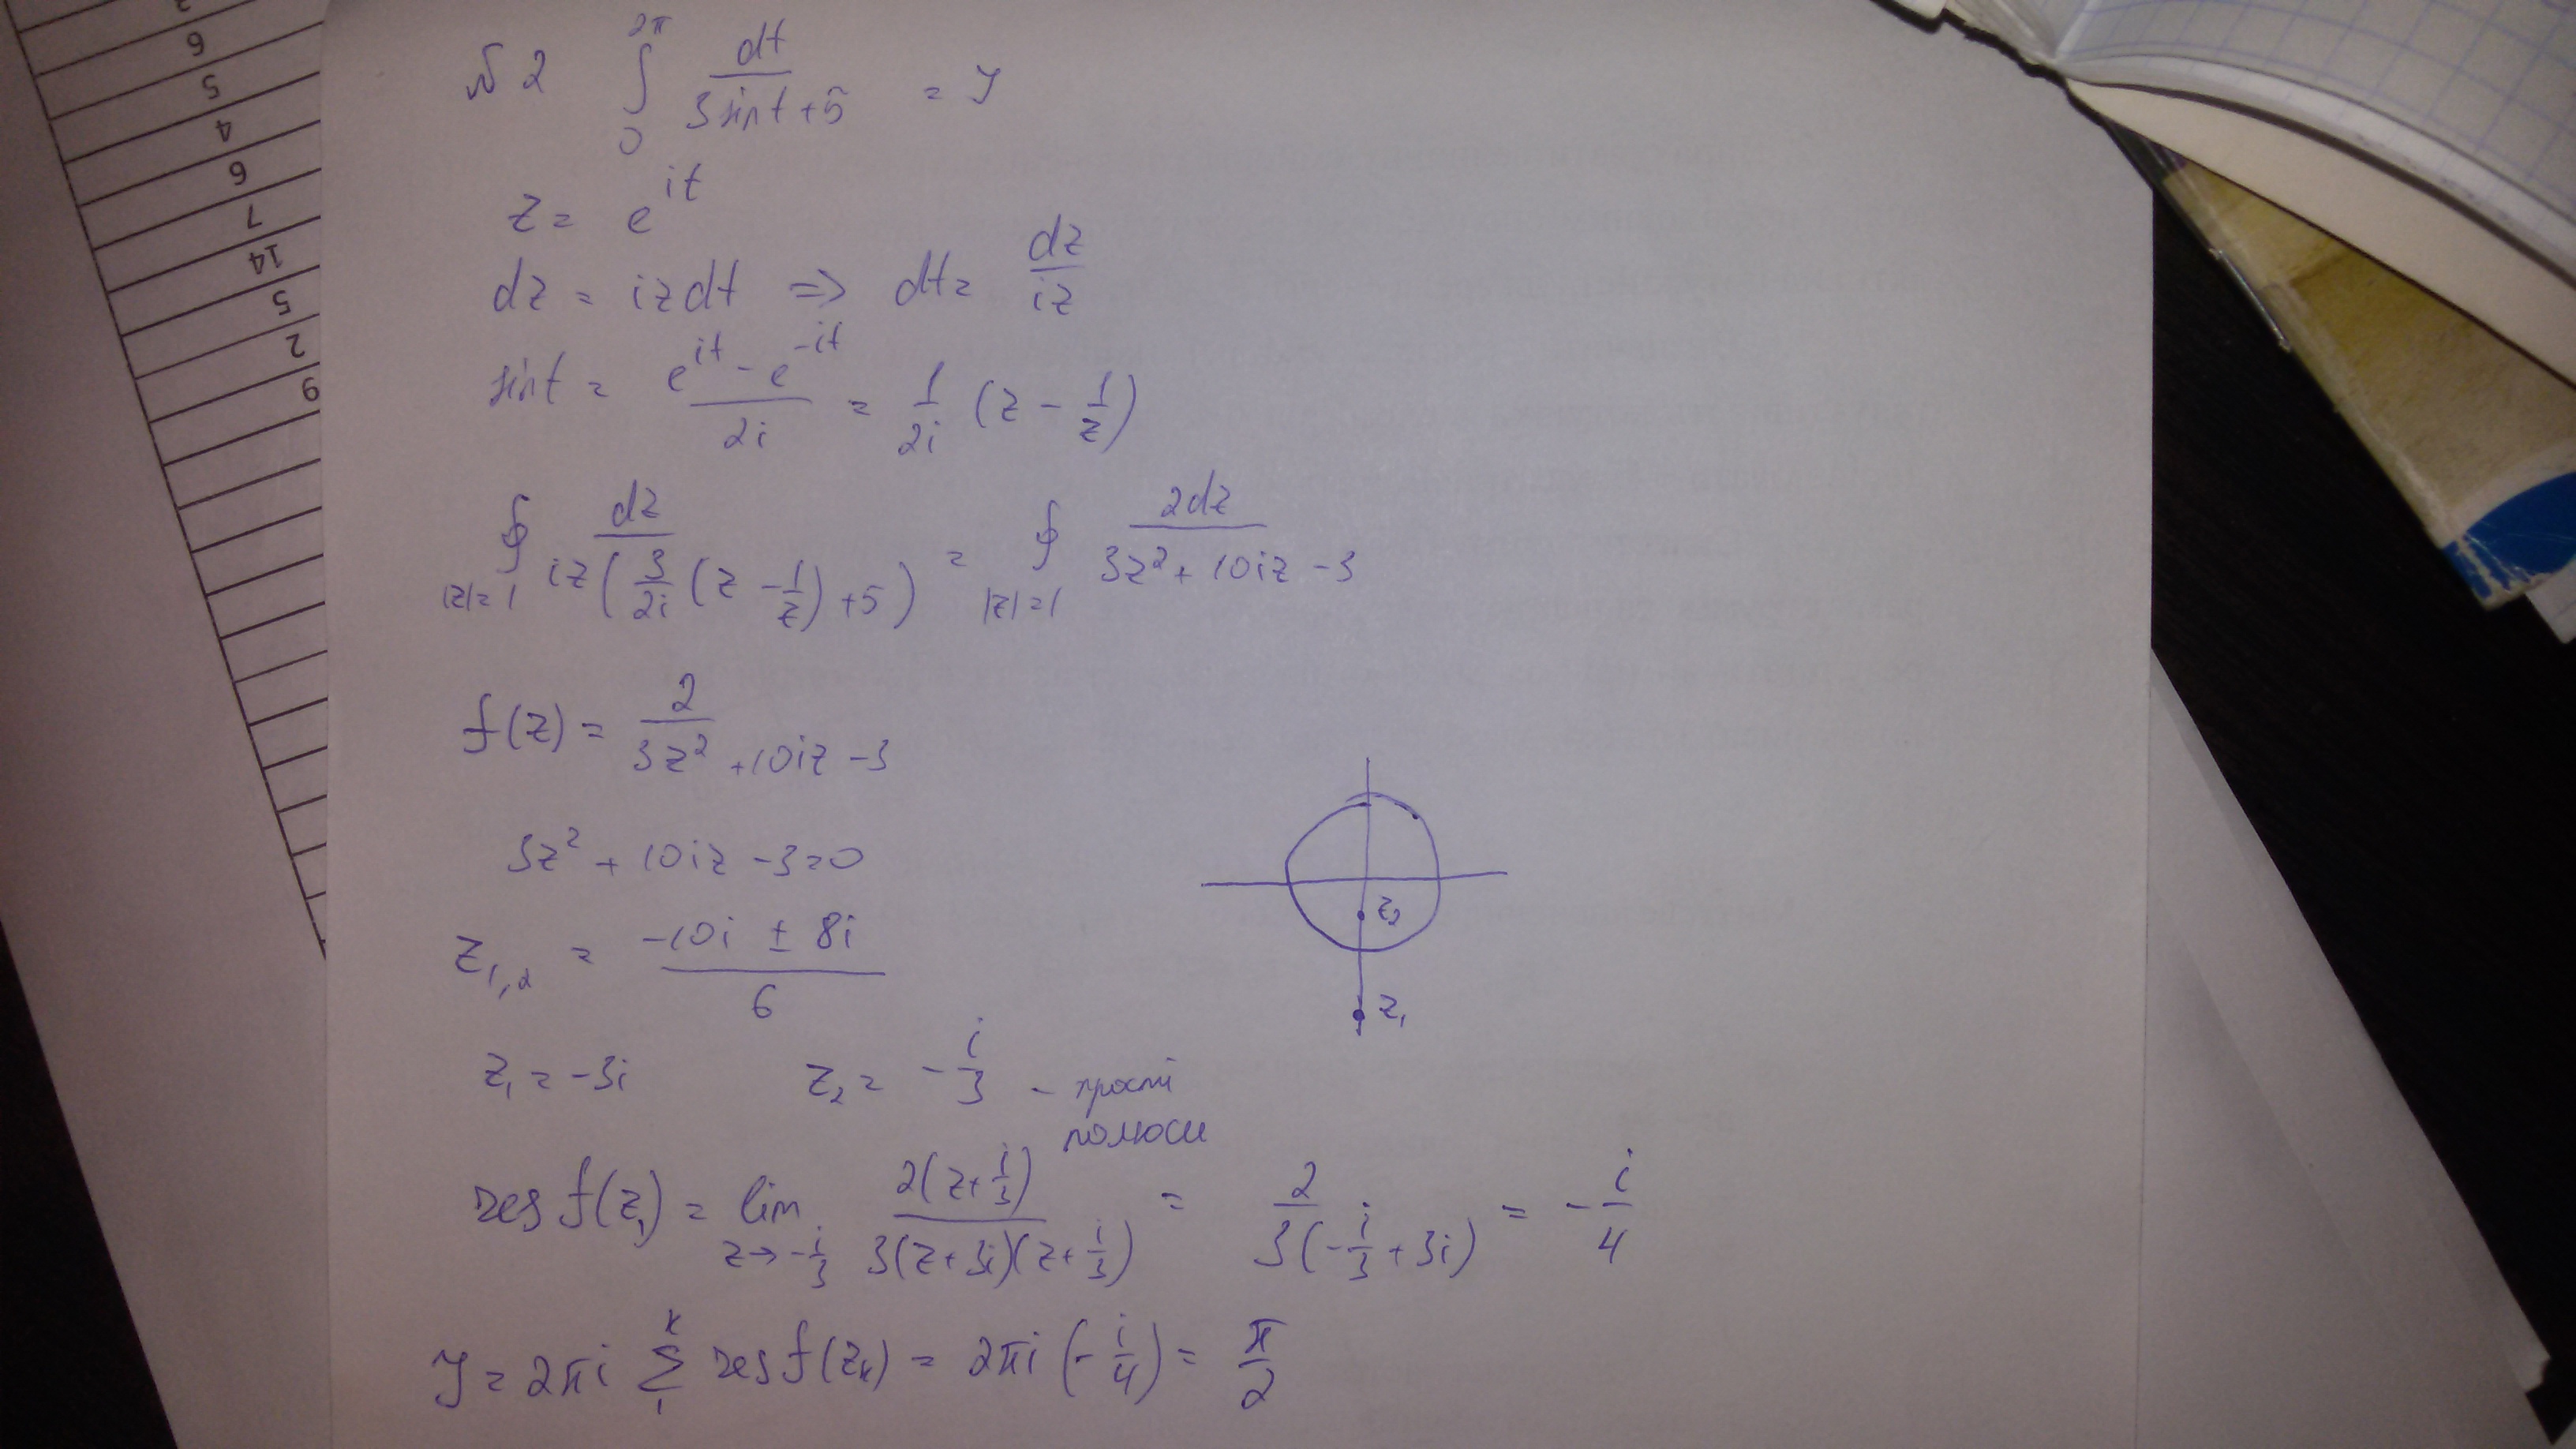 № 2 ∫₀^{2π} dt/(3sint+5) = y
z = e^{it}
dz = izdt => dt = dz/iz
sint = (e^{it} - e^{-it})/2i = 1/2i (z - 1/z)
∮_{|z|=1} dz/(iz(3/2i (z - 1/z) + 5)) = ∮_{|z|=1} 2dz/(3z² + 10iz - 3)
f(z) = 2/(3z² + 10iz - 3)
3z² + 10iz - 3 = 0
z₁,₂ = (-10i ± 8i)/6
z₁ z₂
z₁ = -3i z₂ = -i/3 - прості
полюси
res f(z₂) = lim_{z→-i/3} 2(z+i/3)/(3(z+3i)(z+i/3)) = 2/(3(-i/3+3i)) = -i/4
y = 2πi Σ₁ᵏ res f(zₖ) = 2πi (-i/4) = π/2
9
2
5
14
7
6
4
5
6